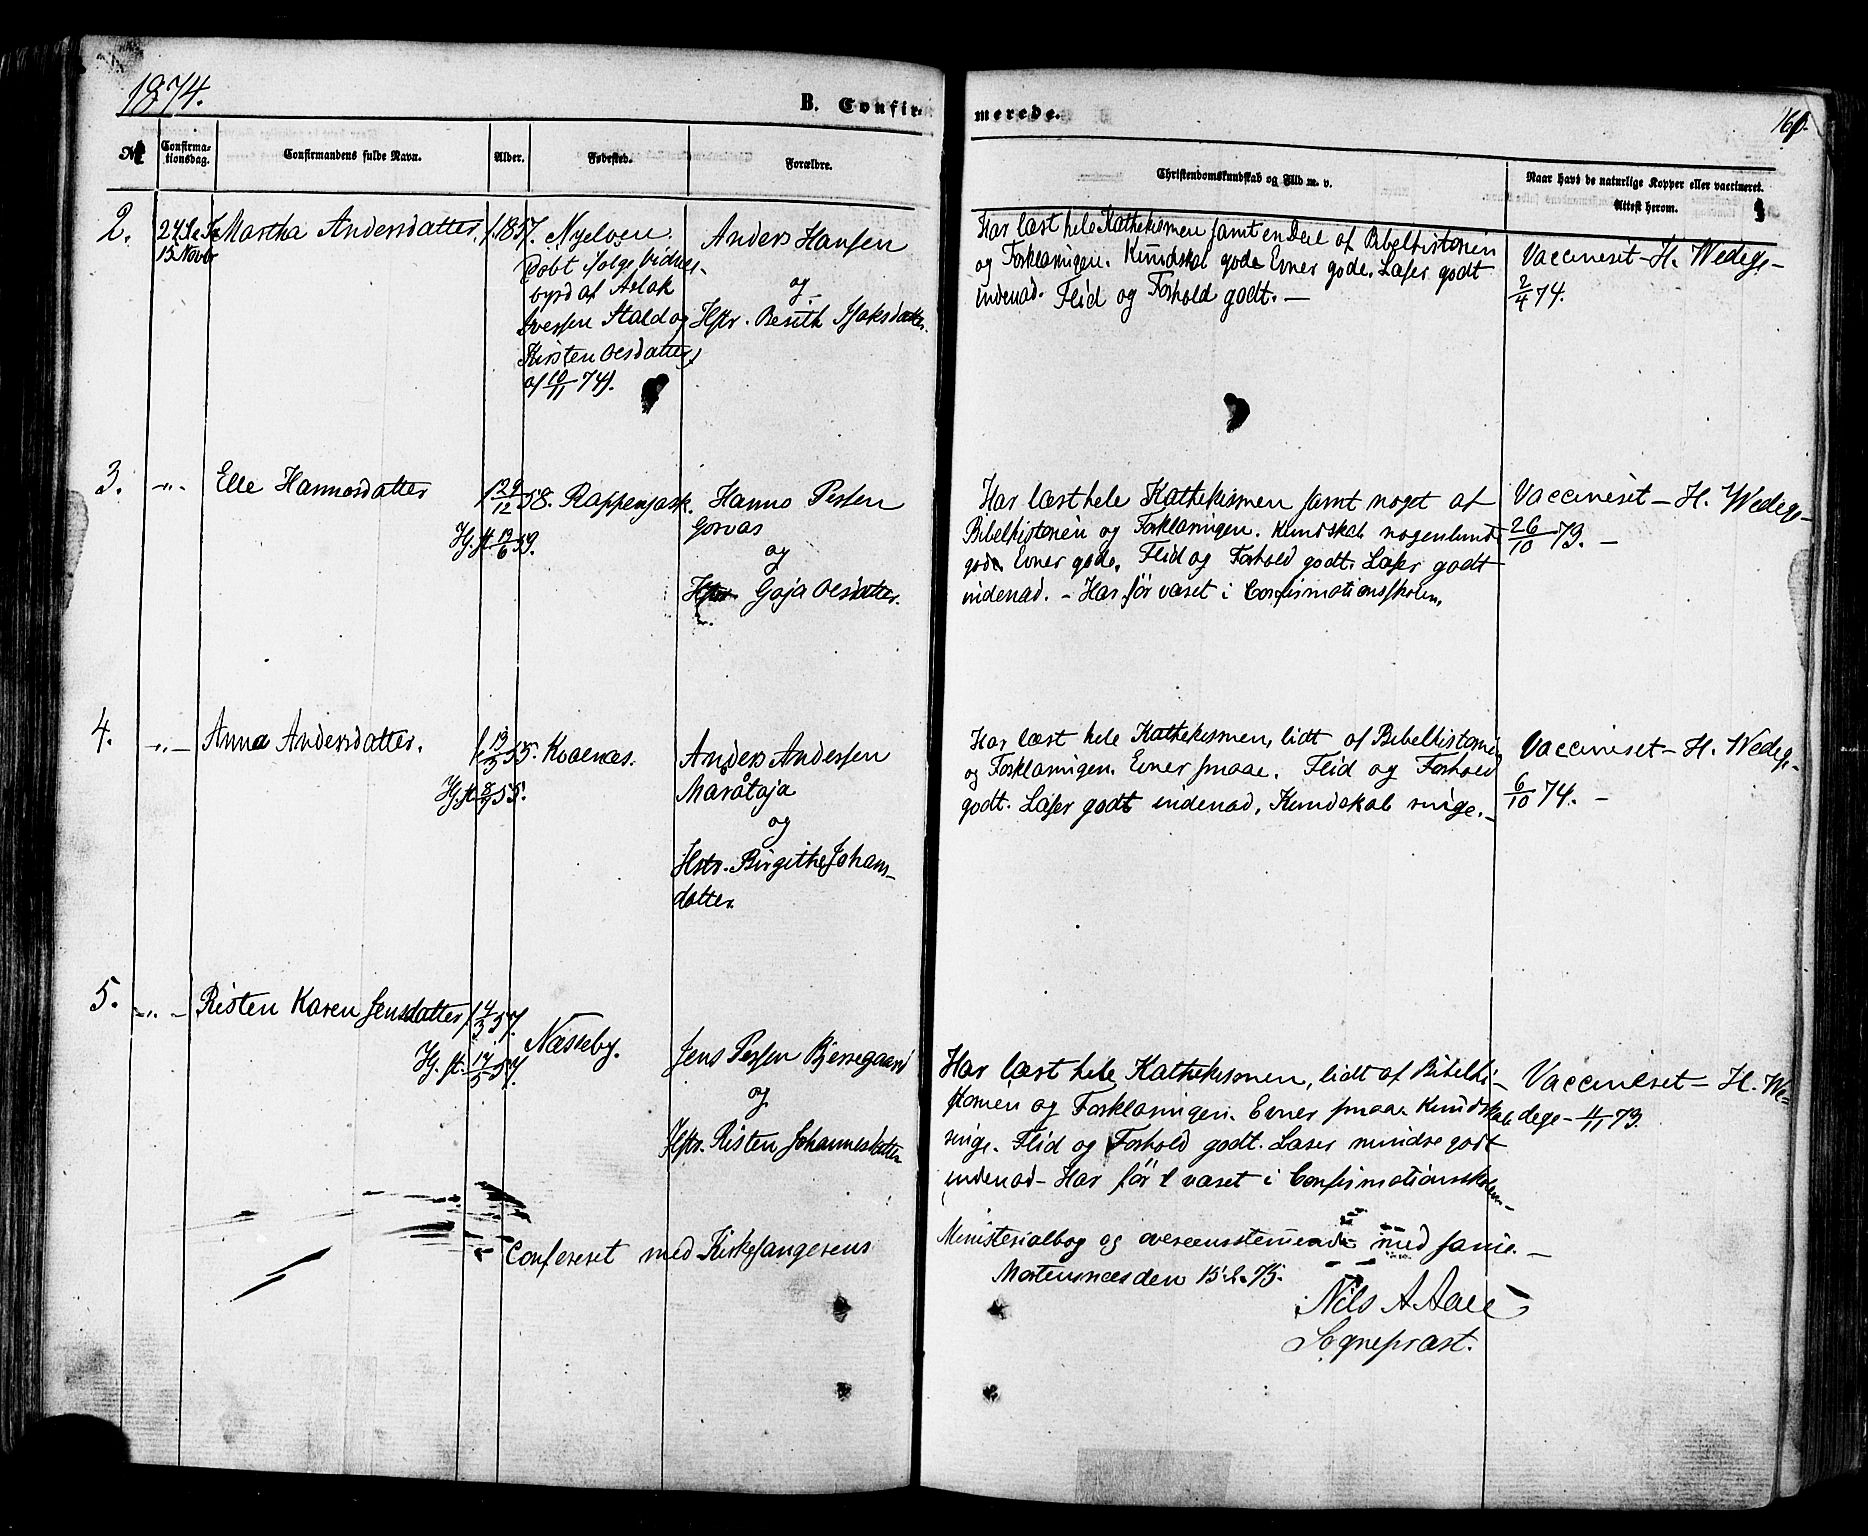 1874.
B. Confir-
merede.
160.
№
Confirma-
tionsdag.
Confirmandens fulde Navn.
Alder.
Fødested.
Forældre.
Christendomskundskab og Flid m. v.
Naar havd de naturlige Kopper eller vaccineret.
Attest herom.
2.
24 S. e. Tr.
15 Novbr
Martha Andersdatter.
f. 1857.
Nyelven.
Døbt ifølge Vidnes-
byrd af Aslak
Iversen Stald og
Kirsten Olsdatter,
af 10/11 74).
Anders Hansen
og
Hstr. Berith Isaksdatter.
Har læst hele Kathekismen samt en Deel af Bibelhistorien
og Forklaringen. Kundskab gode Evner gode. Læser godt
indenad. Flid og Forhold godt. —
Vaccineret – H. Wedege –
2/4 74.
3.
-"-
Elle Hannosdatter
f. 29/12 58.
Hj. st. 19/6 59.
Rappenjask.
Hanno Persen
Gorvas
og
Hstr. Gaja Olsdatter.
Har læst hele Kathekismen samt noget af
Bibelhistorien og Forklaringen. Kundskab nogenlunde
gode. Evner gode. Flid og Forhold godt. Læser godt
indenad. – Har før været i Confirmationsskolen.
Vaccineret – H. Wedege –
26/10 73. –
4.
-"-
Anna Andersdatter.
f. 13/3 55.
Hj. st. 8/9 55.
Koaenæs.
Anders Andersen
Maråtaja
og
Hstr. Birgithe Johans-
datter.
Har læst hele Kathekismen, lidt af Bibelhistorien
og Forklaringen. Evner smaae. Flid og Forhold
godt. Læser godt indenad, Kundskab ringe. –
Vaccineret – H. Wedege –
6/10 74. –
5.
-"-
Risten Karen Jensdatter
f. 4/3 57.
Hj. st. 17/5 57.
Næsseby.
Jens Persen Bjerregaard
og
Hstr. Risten Johannesdatter
Har læst hele Kathekismen, lidt af Bibelhi-
storien og Forklaringen. Evner smaae Kundskab
ringe. Flid og Forhold godt. Læser mindre godt
indenad – Har før 1 været i Confirmationsskolen –
Vaccineret – H. We-
dege – 4/11 73.
Confereret med Kirkesangerens
Ministerialbog og overeensstemmende med samme. –
Mortensnæs den
Nils A Aall
Sognepræst.